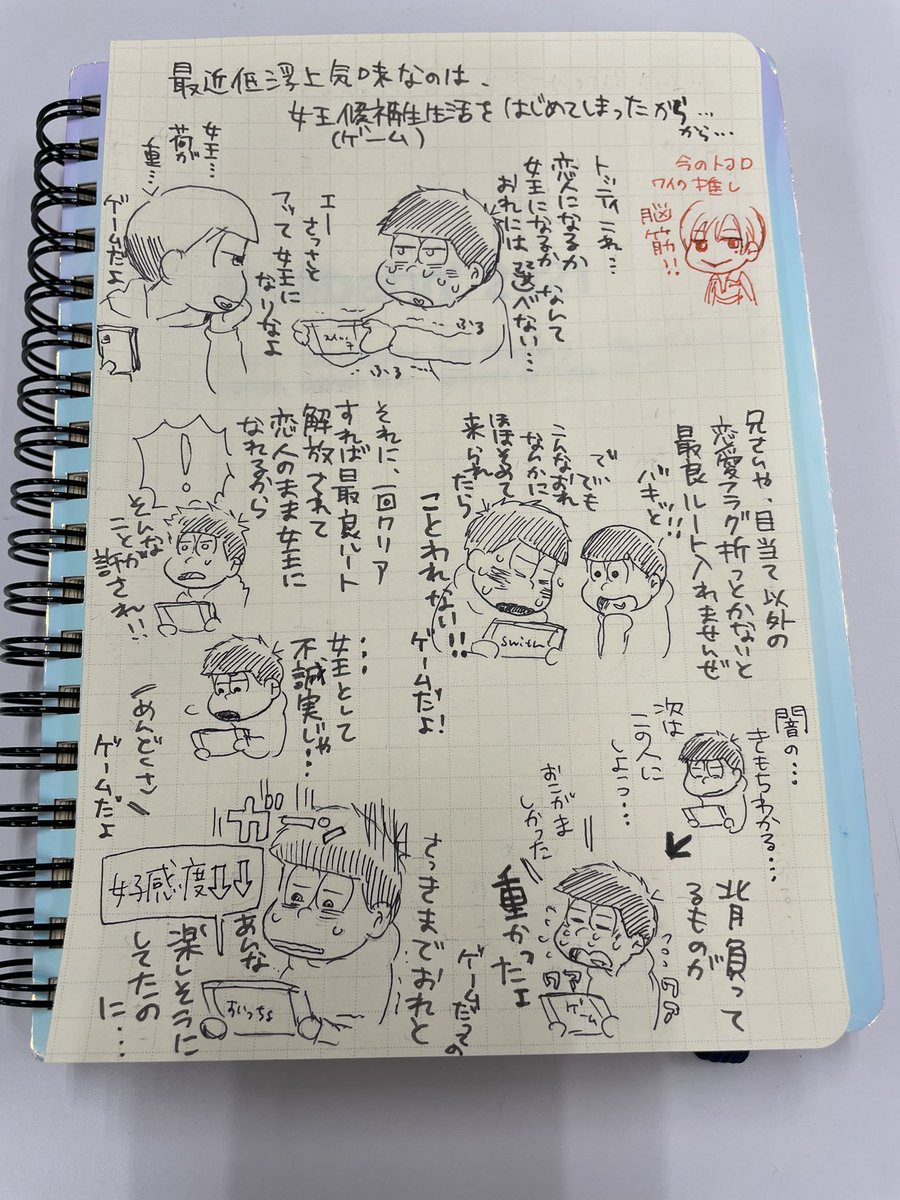 最近低浮上気味なのは、
女王候補生生活をはじめてしまったから…
から…
(ゲーム)
今のトコロ
ワイの推し
脳
筋!!
トッティこれ…
恋人になるか
女王になるか なんて
おれには 選べない…
スイッチ
ふる
ふる
エー
さっさと
アッて 女王に
なりなよ
女王…
荷が
重…
ゲームだよ
兄さんや、目当て以外の
恋愛フラグ折っとかないと
最良ルート入れませんぜ
バキッと!!
で、でも
こんなおれ
なんかに
ほほそめて
来られたら
ことわれない!!
switch
ゲームだよ!
それに、一回クリア
すれば最良ルート
解放されて
恋人のまま女王に
なれるから
!
そんな
ことが
許され!!
女王として
不誠実じゃ…
めんどくさ
ゲームだよ
闇の…
きもちわかる…
次は
この人に
しよっ…
背負って
るものが
重かったよ
おこがま
しかった
ゲーム
ゲームだっての
さっきまでおれと
あんな
楽しそうに
してたの
に…
ガーン
女子感度↓↓
すいっちょ